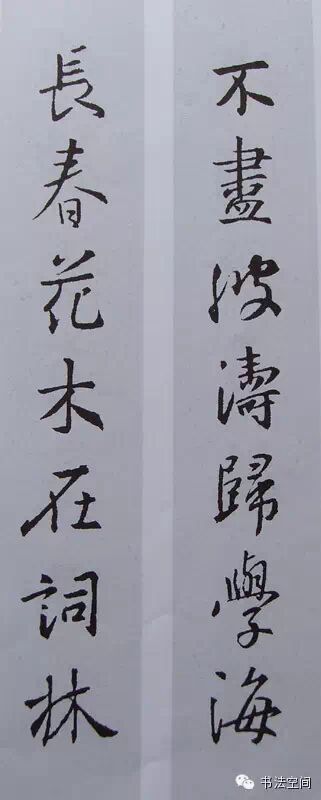 不盡波濤歸學海
長春花木在詞林
书法空间